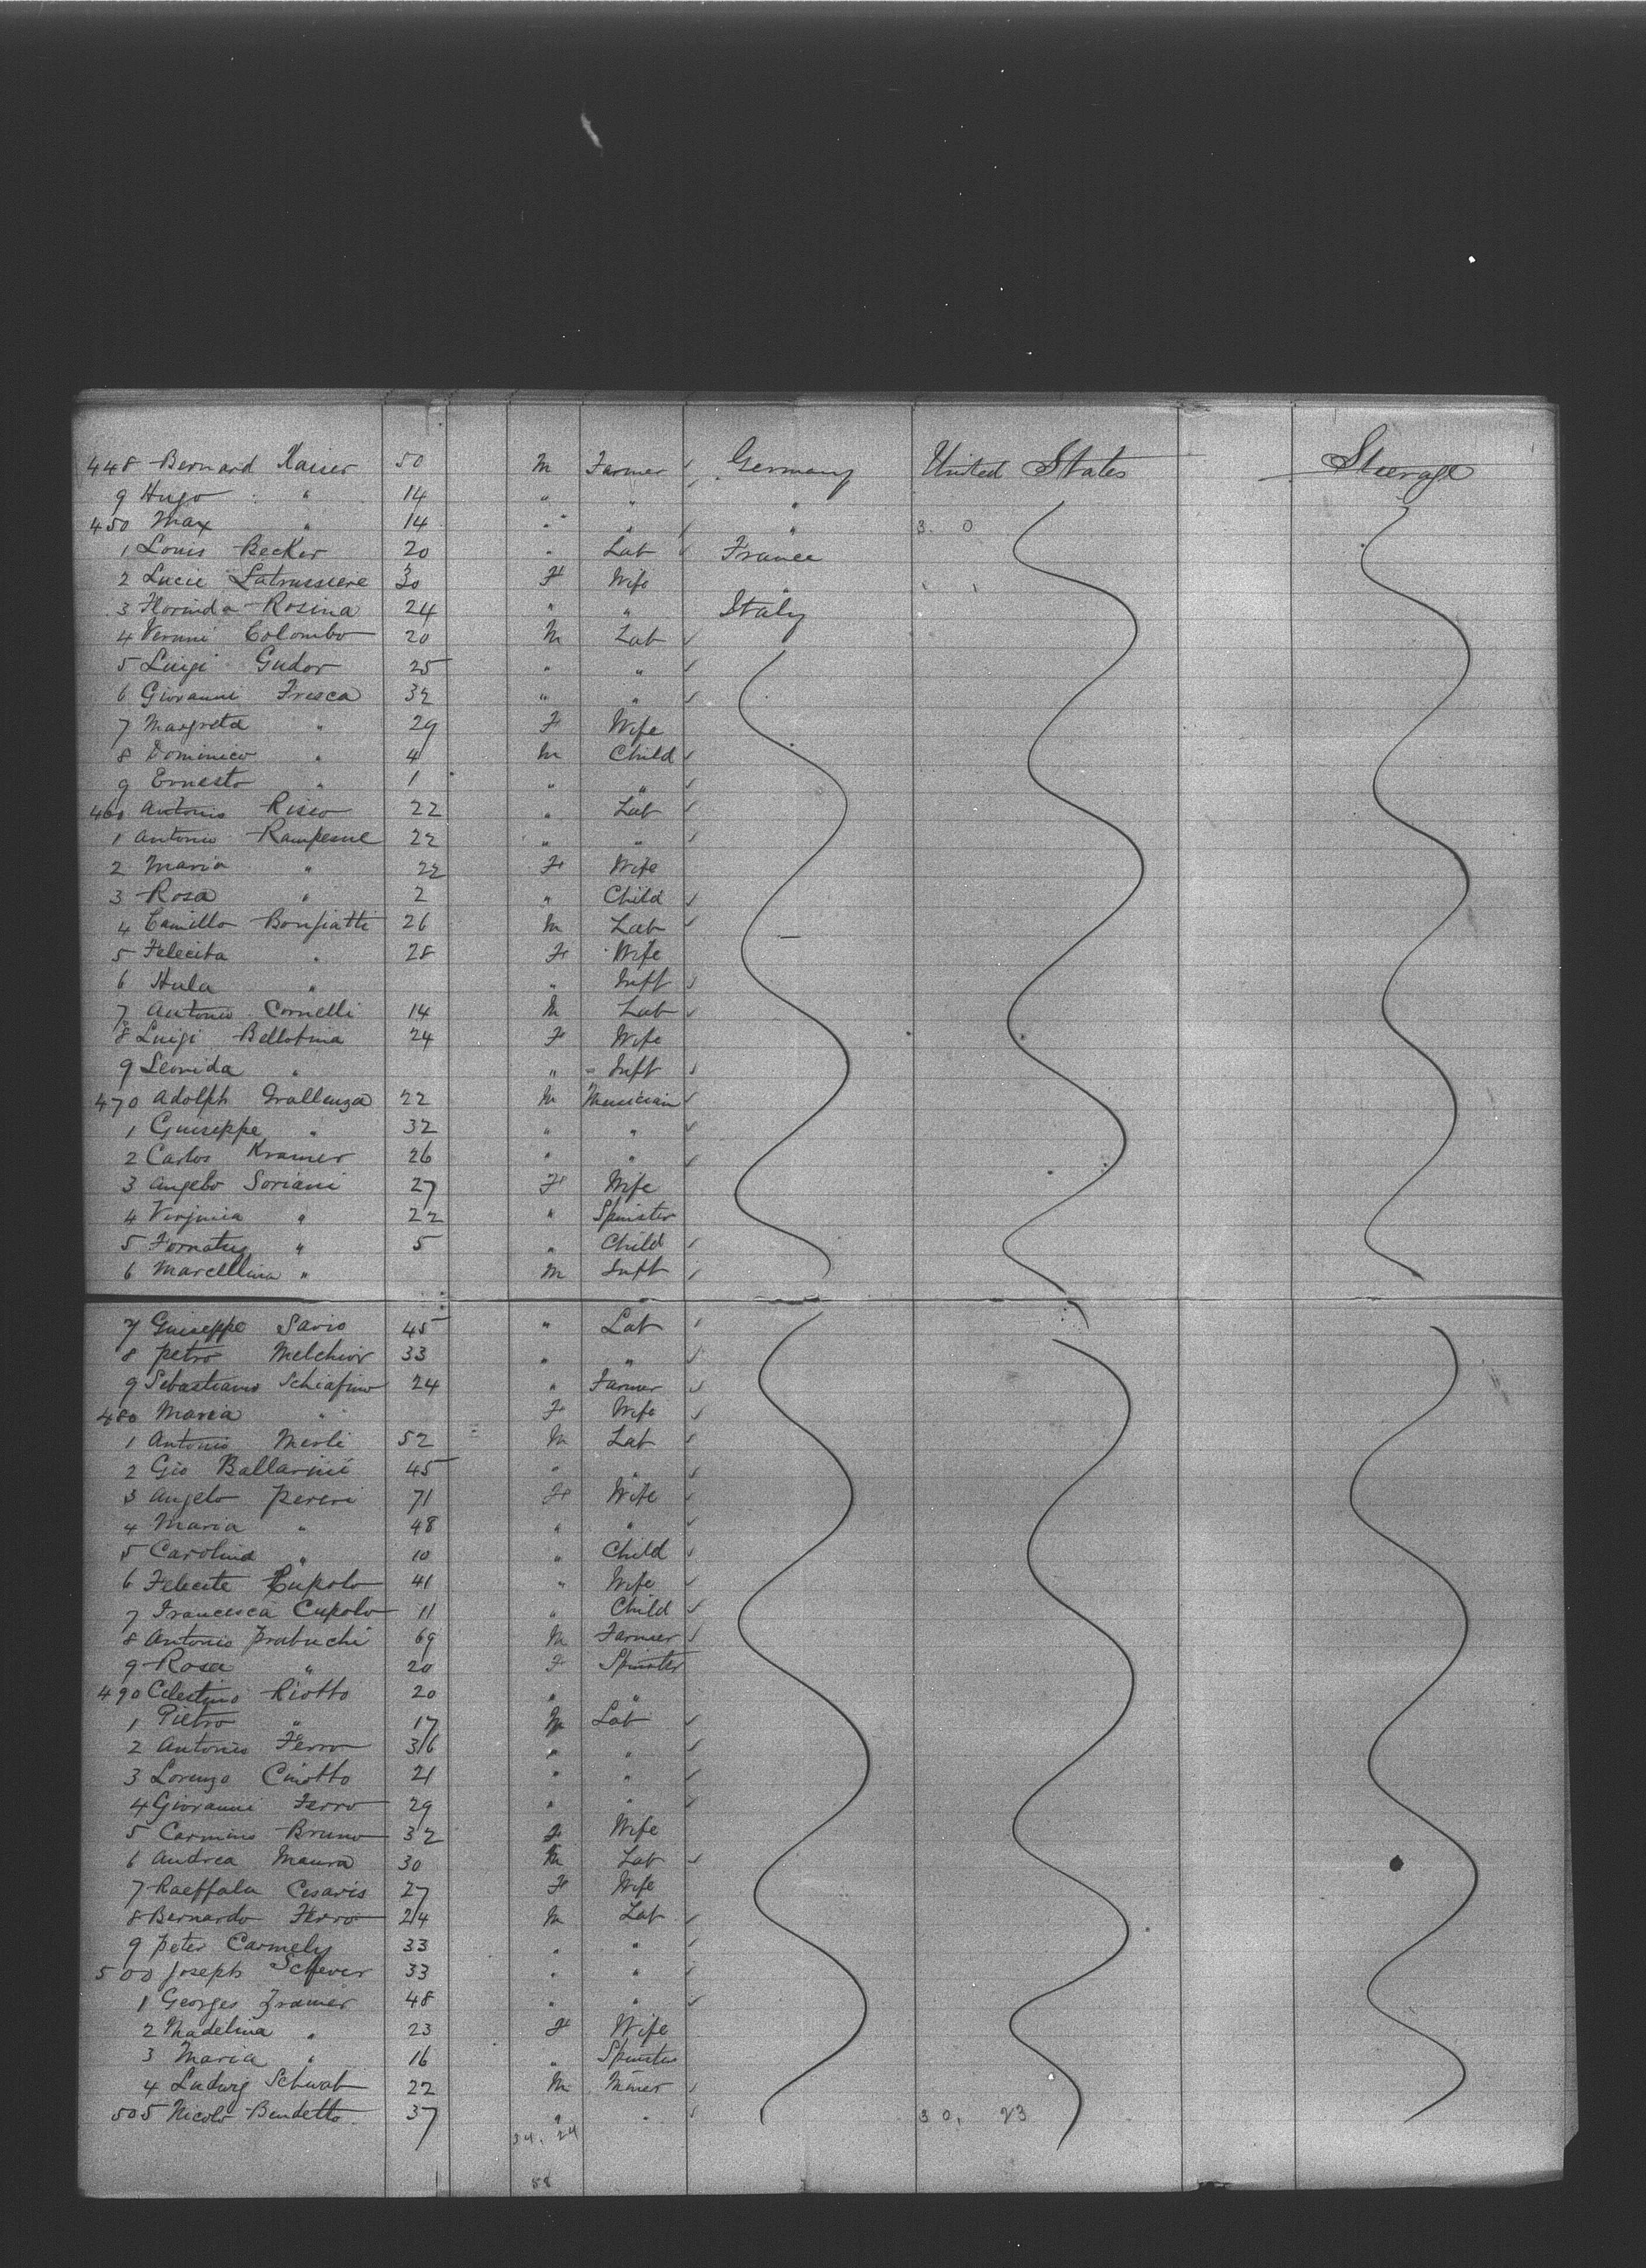 448 Bernard Kaiser 50 M Farmer Germany United States Steerage
9 Hugo " 14 " " "
450 Max " 14 " " " 3. 0
1 Louis Becker 20 " Lab France
2 Lucie 30 F Wife "
3 Florinda Rosina 24 " " Italy
4 Colombo 20 M Lab
5 Luigi Gudor 25 " "
6 Giovanni Fresca 32 " "
7 Margreta " 29 F Wife
8 Dominico " 4 M Child
9 Ernesto " 1 " "
460 Antonio Risso 22 " Lab
1 Antonio 22 " "
2 Maria " 22 F Wife
3 Rosa " 2 " Child
4 Camillo Bonfiatti 26 M Lab
5 Felecita " 28 F Wife
6 Hula " " Inft
7 Antonio Cornelli 14 M Lab
8 Luigi Bellotina 24 F Wife
9 Leonida " " Inft
470 Adolph Grallenza 22 M Musician
1 Guiseppe " 32 " "
2 Carlos Kramer 26 " "
3 Angelo Soriani 27 F Wife
4 Virjinia " 22 " Spinster
5 " 5 " Child
6 Marcellina " M Inft
7 Guiseppe Savio 45 " Lab
8 Petro Melchior 33 " "
9 Sebastiano Schiafino 24 " Farmer
480 Maria " F Wife
1 Antonio Merli 52 M Lab
2 Gio Ballarini 45 " "
3 Angelo Pereri 71 F Wife
4 Maria " 48 " "
5 Carolina " 10 " Child
6 Felecite Cupolo 41 " Wife
7 Francesca Cupolo 11 " Child
8 Antonio Prabuchi 69 M Farmer
9 Rosa " 20 F Spinster
490 Celestino Riotto 20 " "
1 Pietro " 17 M Lab
2 Antonio Ferro 36 " "
3 Lorenzo Cinotto 21 " "
4 Giovanni Ferro 29 " "
5 Carmino Bruno 32 F Wife
6 Andrea Maura 30 M Lab
7 Raeffala Cesaris 27 F Wife
8 Bernardo Ferro 24 M Lab
9 Peter Carmely 33 " "
500 Joseph Schever 33 " "
1 Georges Framer 48 " "
2 Madelina " 23 F Wife
3 Maria " 16 " Spinster
4 Ludwig Schwab 22 M Miner
505 Nicolo Bendetto 37 " " 30, 23
34, 24
58